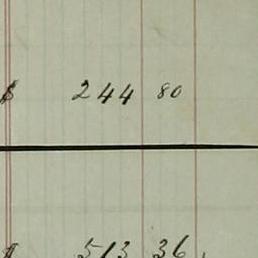 $ 244 80
$ 513 36